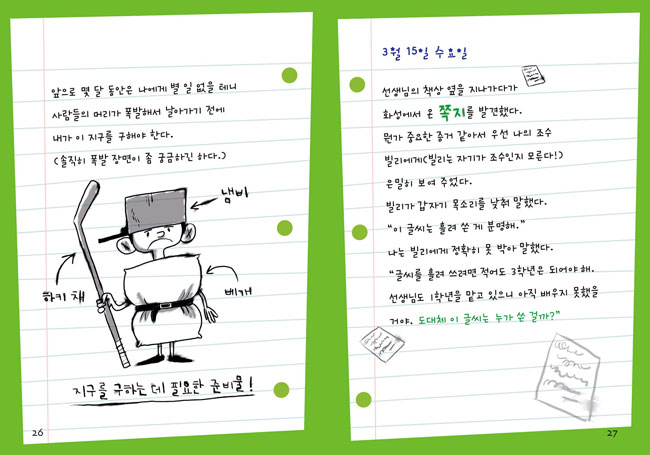 앞으로 몇 달 동안은 나에게 별 일 없을 테니
사람들의 머리가 폭발해서 날아가기 전에
내가 이 지구를 구해야 한다.
(솔직히 폭발 장면이 좀 궁금하긴 하다.)
냄비
하키 채
베개
지구를 구하는 데 필요한 준비물!
26
3월 15일 수요일
선생님의 책상 옆을 지나가다가
화성에서 온 쪽지를 발견했다.
뭔가 중요한 증거 같아서 우선 나의 조수
빌리에게(빌리는 자기가 조수인지 모른다!)
은밀히 보여 주었다.
빌리가 갑자기 목소리를 낮춰 말했다.
“이 글씨는 흘려 쓴 게 분명해.”
나는 빌리에게 정확히 못 박아 말했다.
“글씨를 흘려 쓰려면 적어도 3학년은 되어야 해.
선생님도 1학년을 맡고 있으니 아직 배우지 못했을
거야. 도대체 이 글씨는 누가 쓴 걸까?”
27